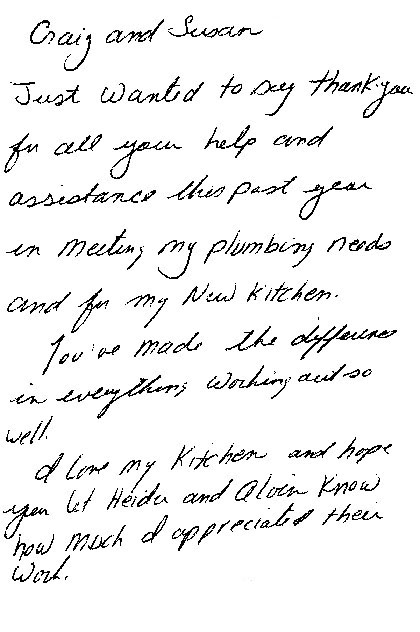 Craig and Susan
Just wanted to say thank-you
for all your help and
assistance this past year
in meeting my plumbing needs
and for my New Kitchen.
You've made the difference
in everything working out so
well.
I love my Kitchen and hope
you let Heidi and Alvin Know
how much I appreciated their
Work.